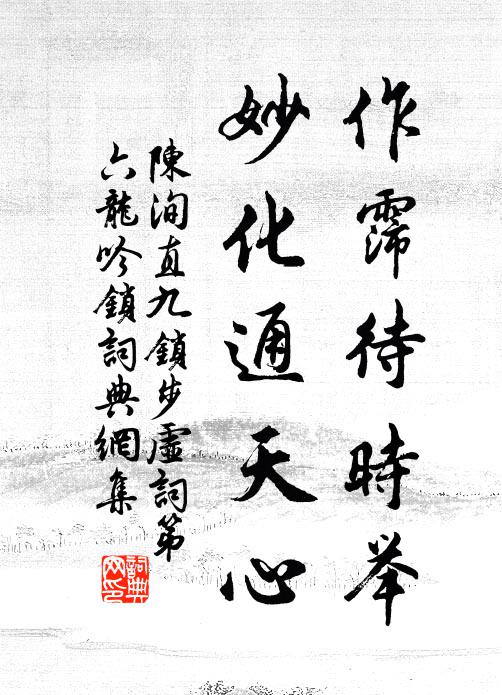 作霈待時举
妙化通天心
陳洵直九鎖步虛詞第
六龍吟鎖詞典網集
詞典
网印